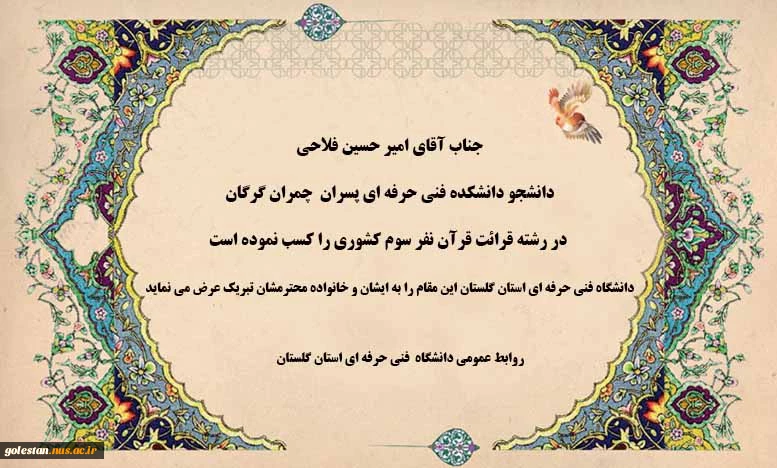 جناب آقای امیر حسین فلاحی
دانشجو دانشکده فنی حرفه ای پسران چمران گرگان
در رشته قرائت قرآن نفر سوم کشوری را کسب نموده است
دانشگاه فنی حرفه ای استان گلستان این مقام را به ایشان و خانواده محترمشان تبریک عرض می نماید
روابط عمومی دانشگاه فنی حرفه ای استان گلستان
golestan.nus.ac.ir